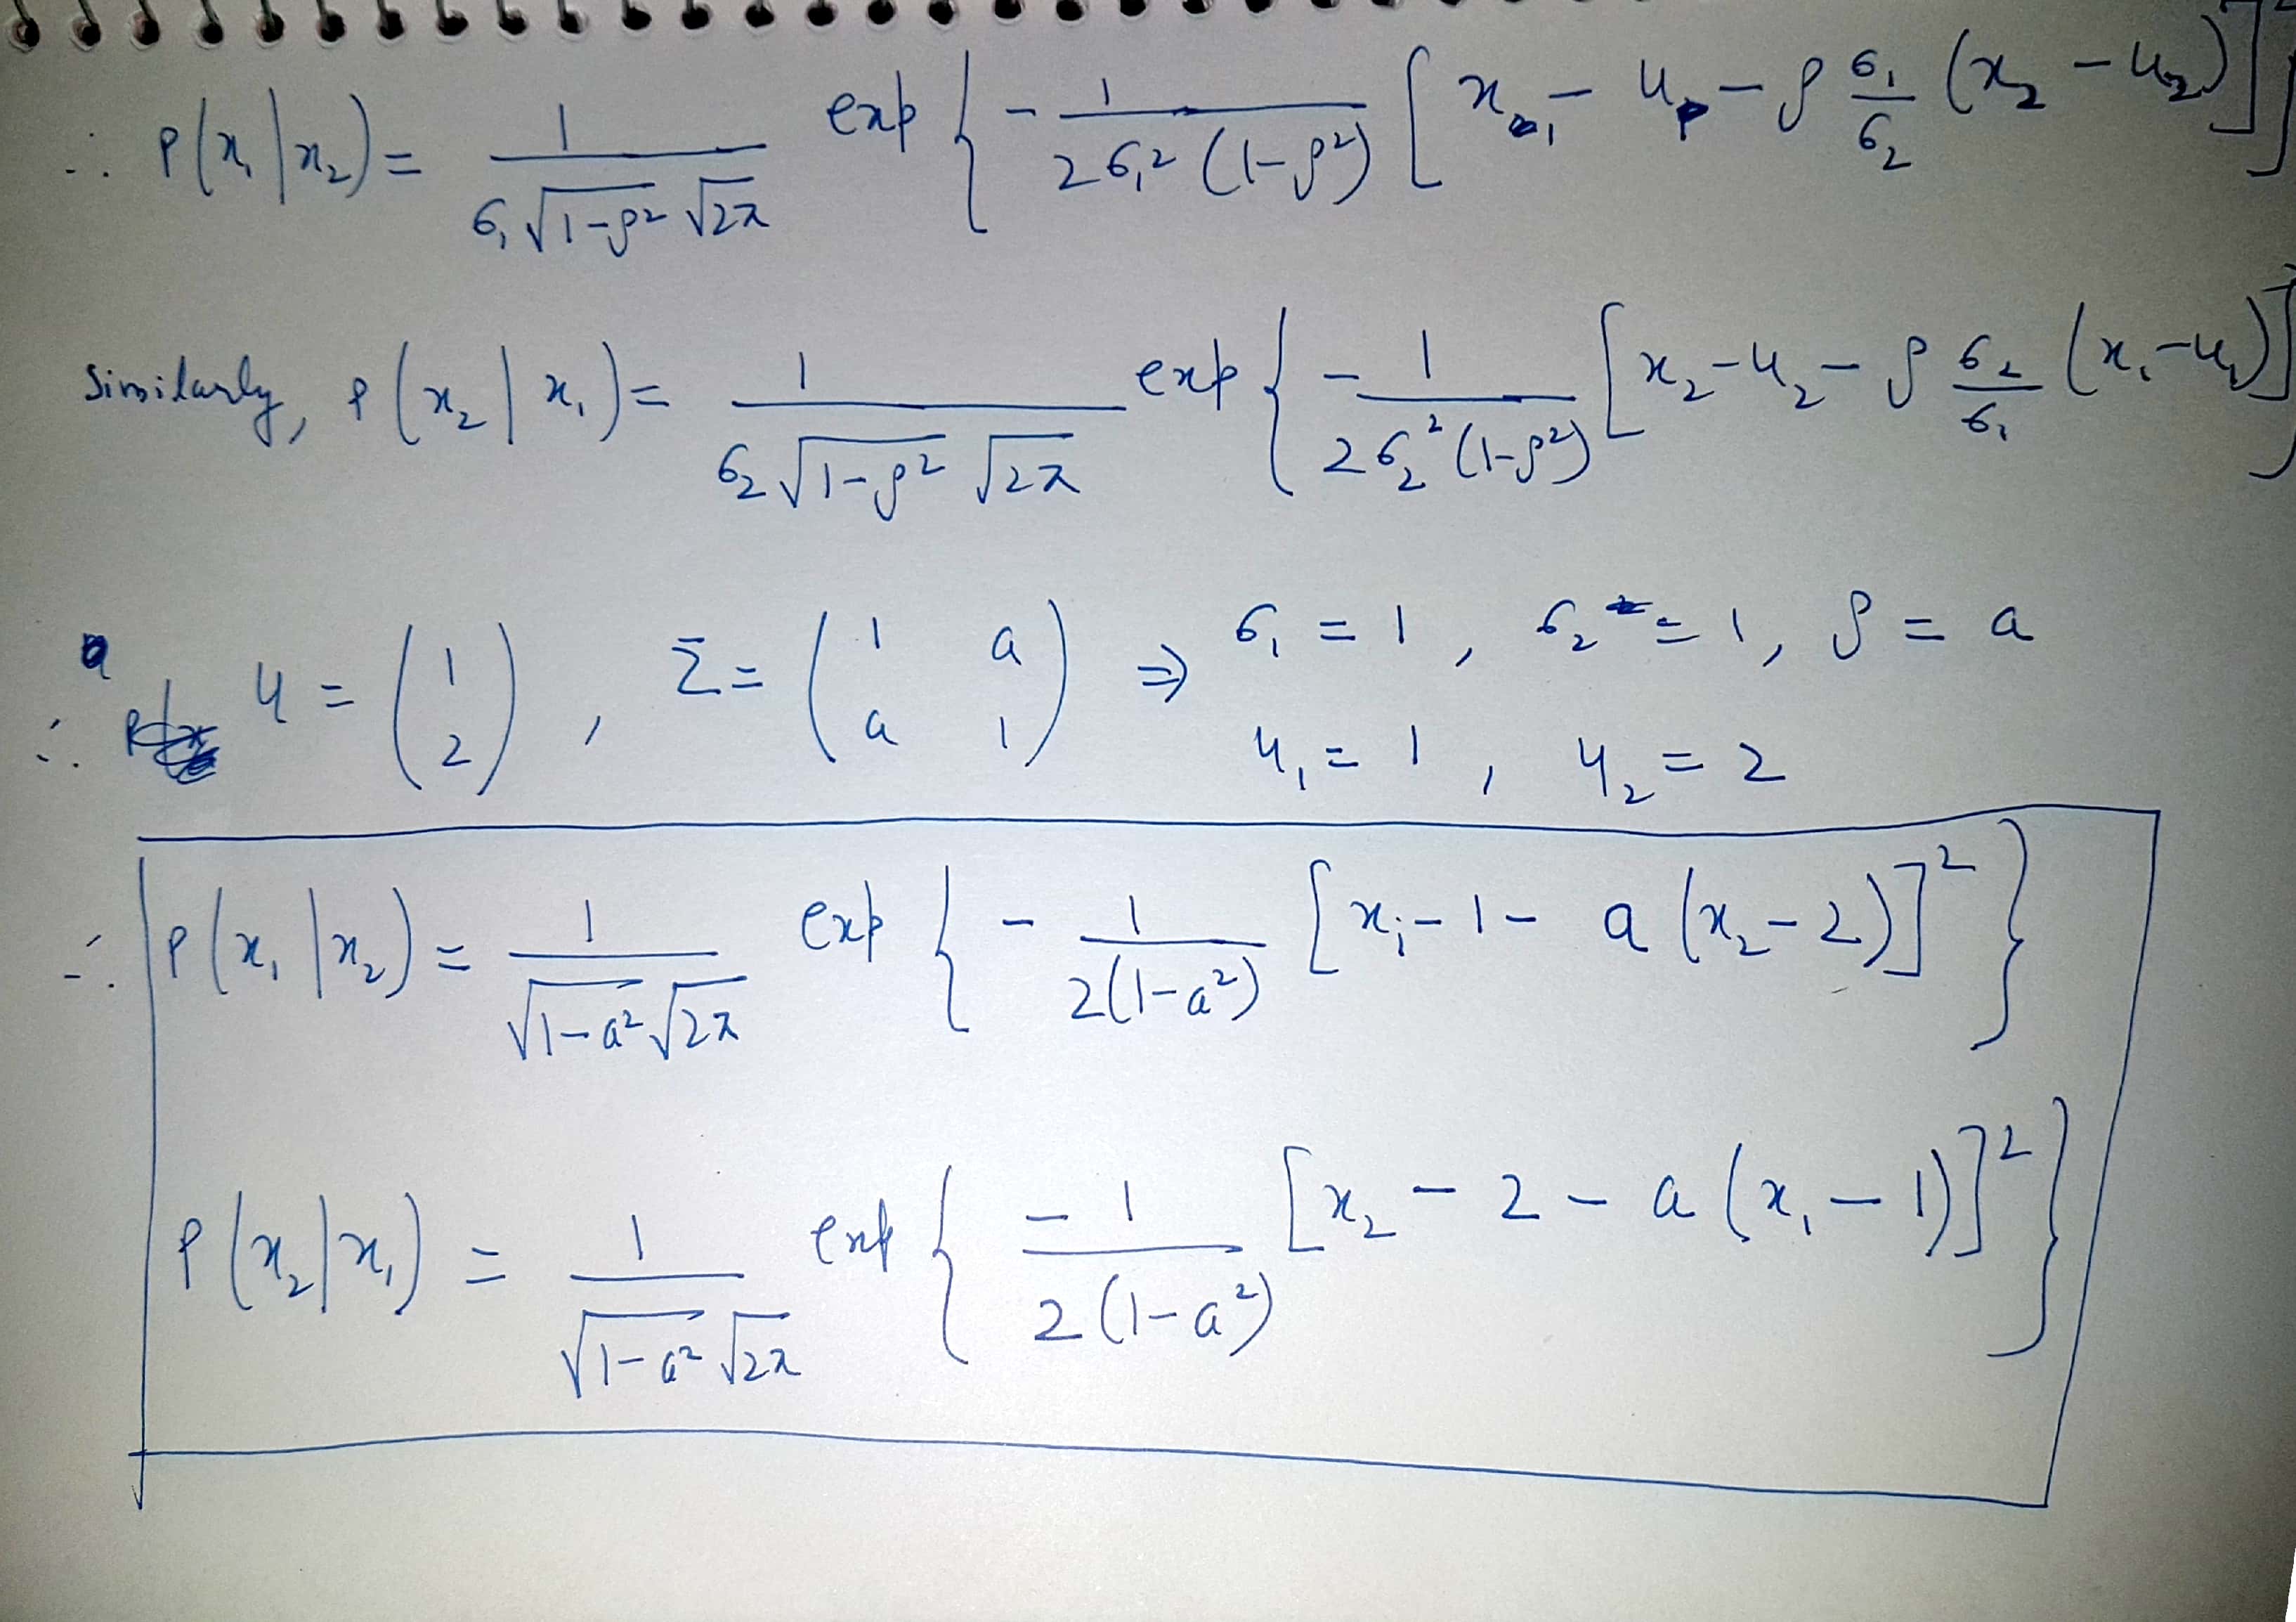 ∴ P(x₁|x₂) = 1/(σ₁√(1-ρ²) √(2π)) exp { - 1/(2σ₁²(1-ρ²)) [x₁ - μ₁ - ρ σ₁/σ₂ (x₂ - μ₂)]² }
Similarly, P(x₂|x₁) = 1/(σ₂√(1-ρ²) √(2π)) exp { - 1/(2σ₂²(1-ρ²)) [x₂ - μ₂ - ρ σ₂/σ₁ (x₁ - μ₁)]
∴ μ = (1 2), Σ = (1 a a 1) ⇒ σ₁ = 1, σ₂ = 1, ρ = a
μ₁ = 1, μ₂ = 2
∴ P(x₁|x₂) = 1/(√(1-a²) √(2π)) exp { - 1/(2(1-a²)) [x₁ - 1 - a(x₂ - 2)]² }
P(x₂|x₁) = 1/(√(1-a²) √(2π)) exp { -1/(2(1-a²)) [x₂ - 2 - a(x₁ - 1)]² }